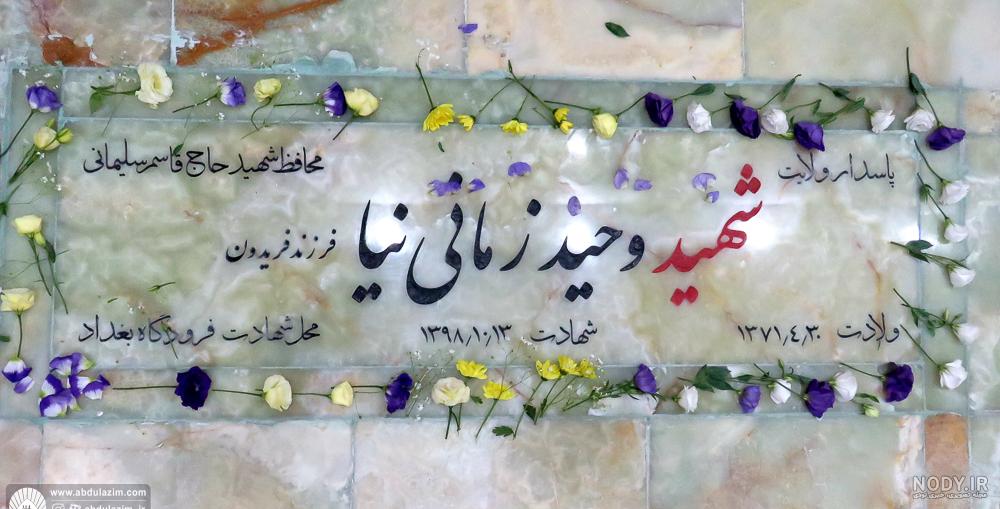 پاسدار ولایت
محافظ شهید حاج قاسم سلیمانی
شهید وحید زمانی نیا
فرزند فریدون
ولادت ۱۳۷۱،۴،۳۰
شهادت ۱۳۹۸،۱۰،۱۳
محل شهادت فرودگاه بغداد
www.abdulazim.com
abdulazim_ir
NODY.IR